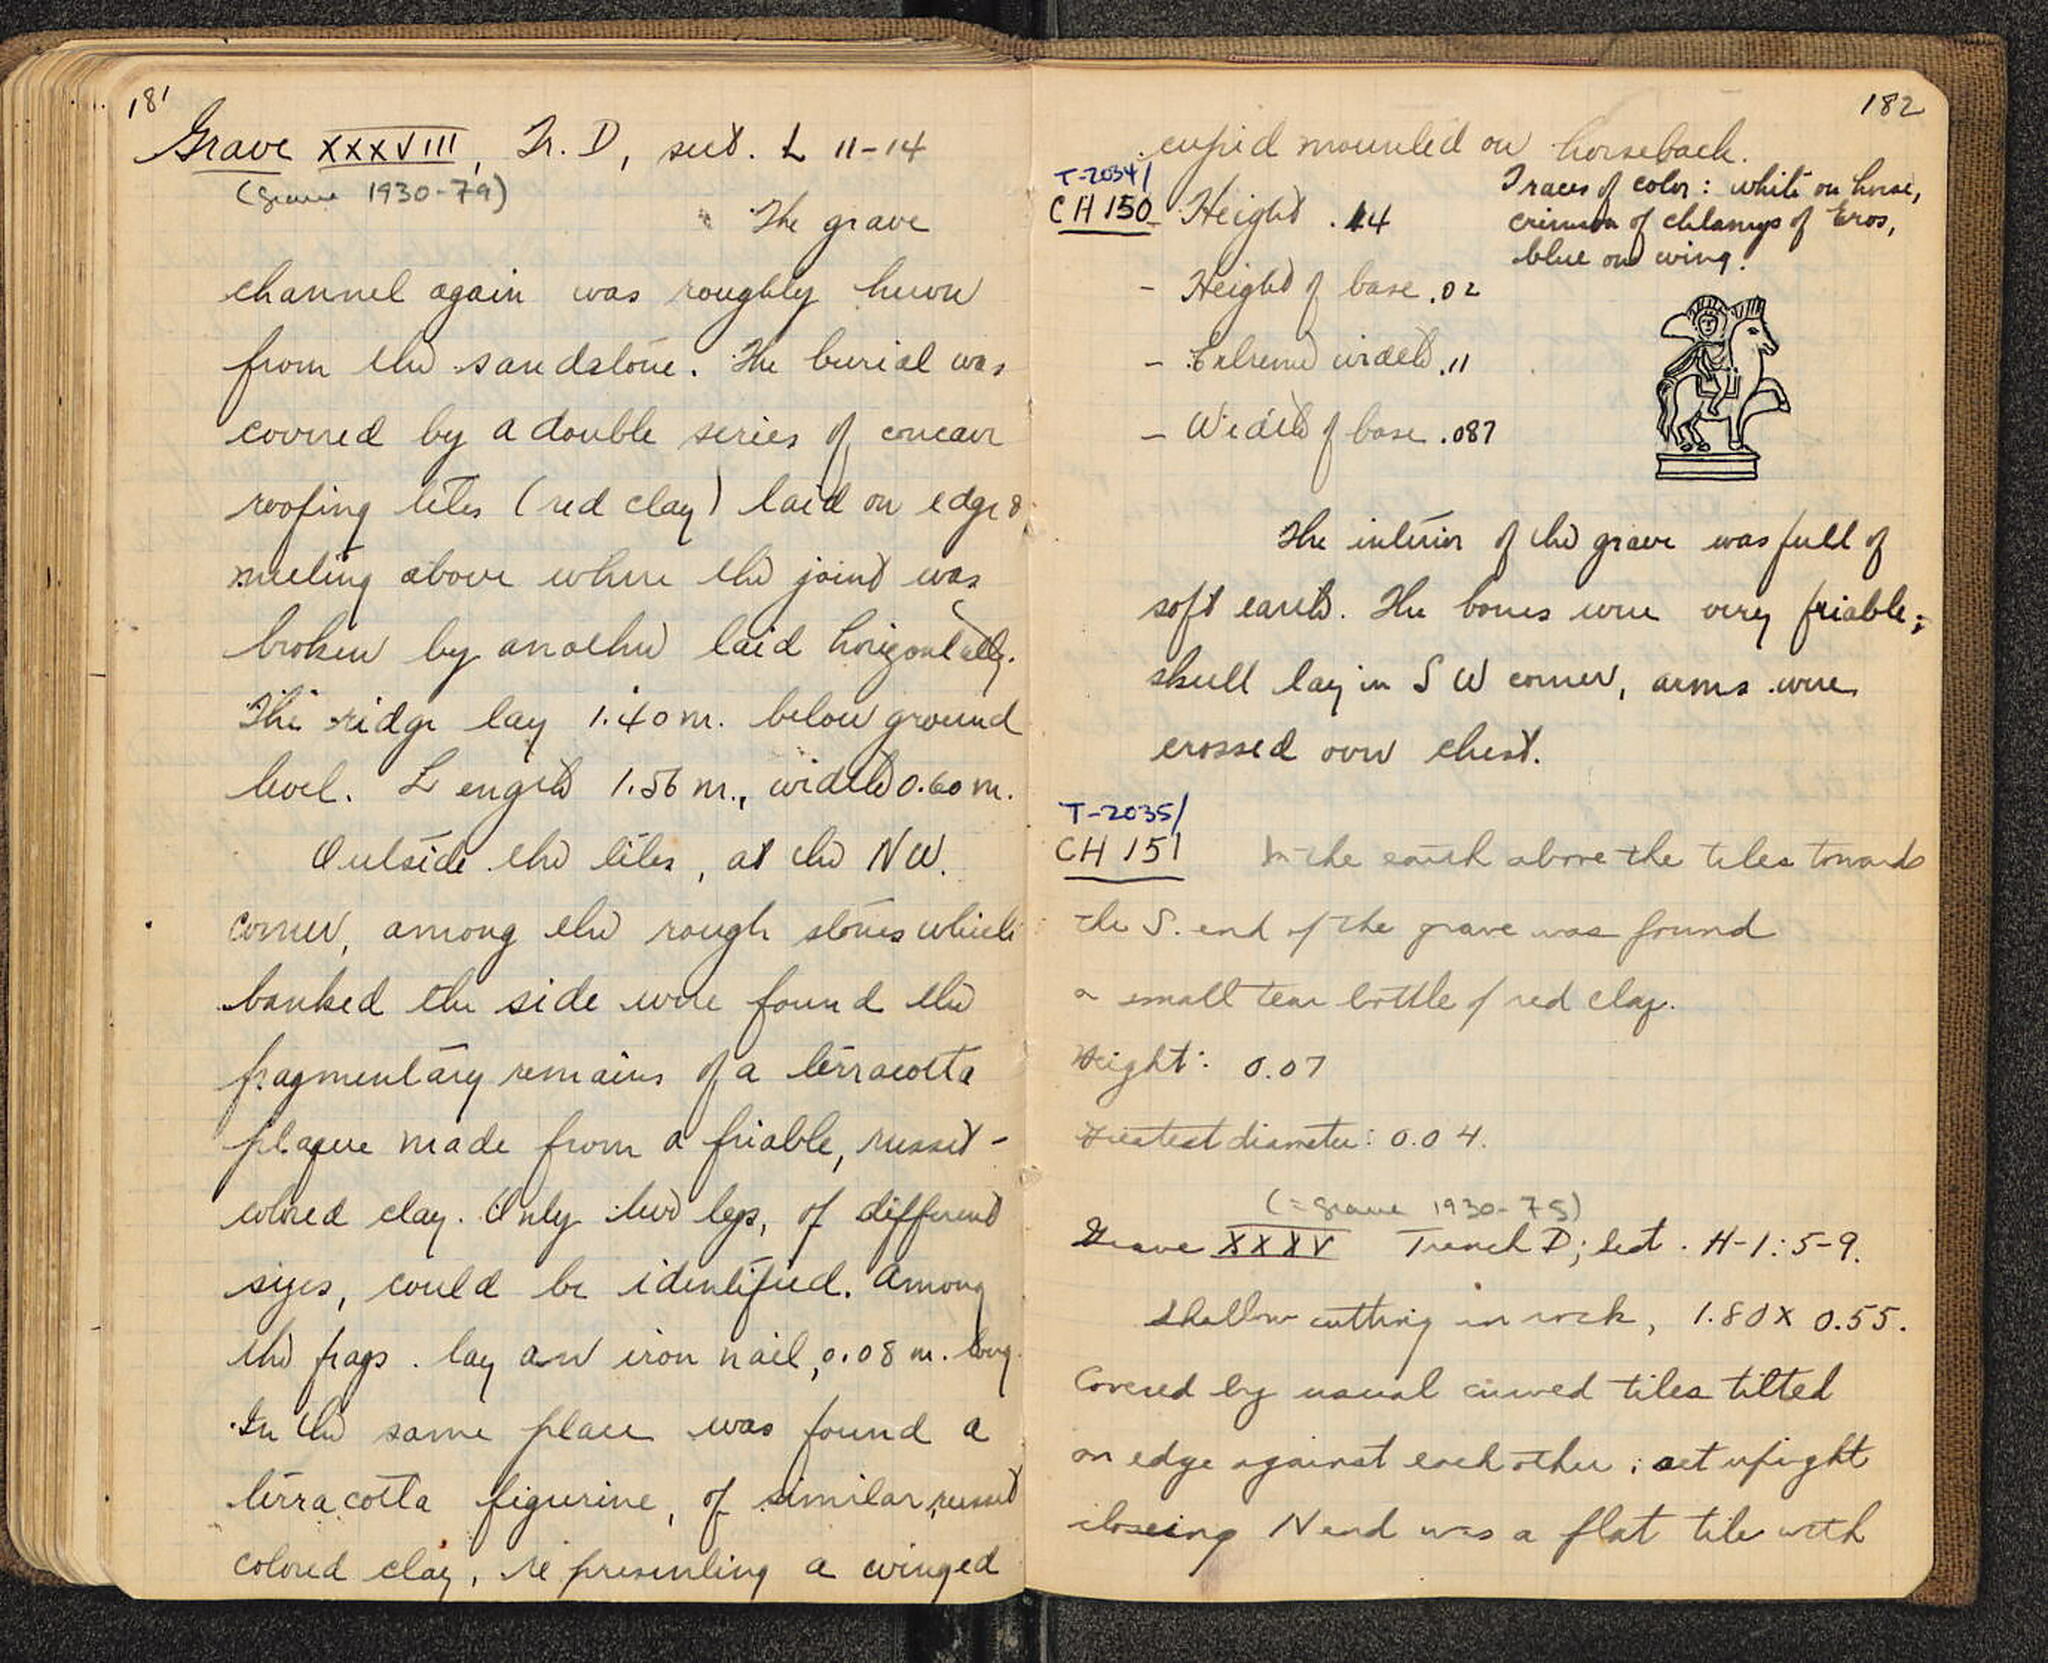 181
Grave XXXVIII, Tr. D, sect. L 11-14
(grave 1930-79)
The grave
channel again was roughly hewn
from the sandstone. The burial was
covered by a double series of concave
roofing tiles (red clay) laid on edge &
meeting above where the joint was
broken by another laid horizontally.
The ridge lay 1.40 m. below ground
level. Length 1.56 m., width 0.60 m.
Outside the tiles, at the NW.
corner, among the rough stones which
banked the side were found the
fragmentary remains of a terracotta
plaque made from a friable, russet-
colored clay. Only two legs, of different
sizes, could be identified. Among
the frags. lay an iron nail, 0.08 m. long.
In the same place was found a
terracotta figurine, of similar, russet
colored clay, representing a winged
182
cupid mounted on horseback.
T-2034/
CH 150
Traces of color: white on horse,
crimson of chlamys of Eros,
blue on wing.
- Height .14
- Height of base .02
- Extreme width .11
- Width of base .087
The interior of the grave was full of
soft earth. The bones were very friable;
skull lay in SW corner, arms were
crossed over chest.
T-2035/
CH 151
In the earth above the tiles towards
the S. end of the grave was found
a small tear bottle of red clay.
Height: 0.07
Greatest diameter: 0.04.
(= grave 1930-75)
Grave XXXV Trench D; sect. H-1:5-9.
Shallow cutting in rock, 1.80 x 0.55.
Covered by usual curved tiles tilted
on edge against each other; set upright
closeing N end was a flat tile with